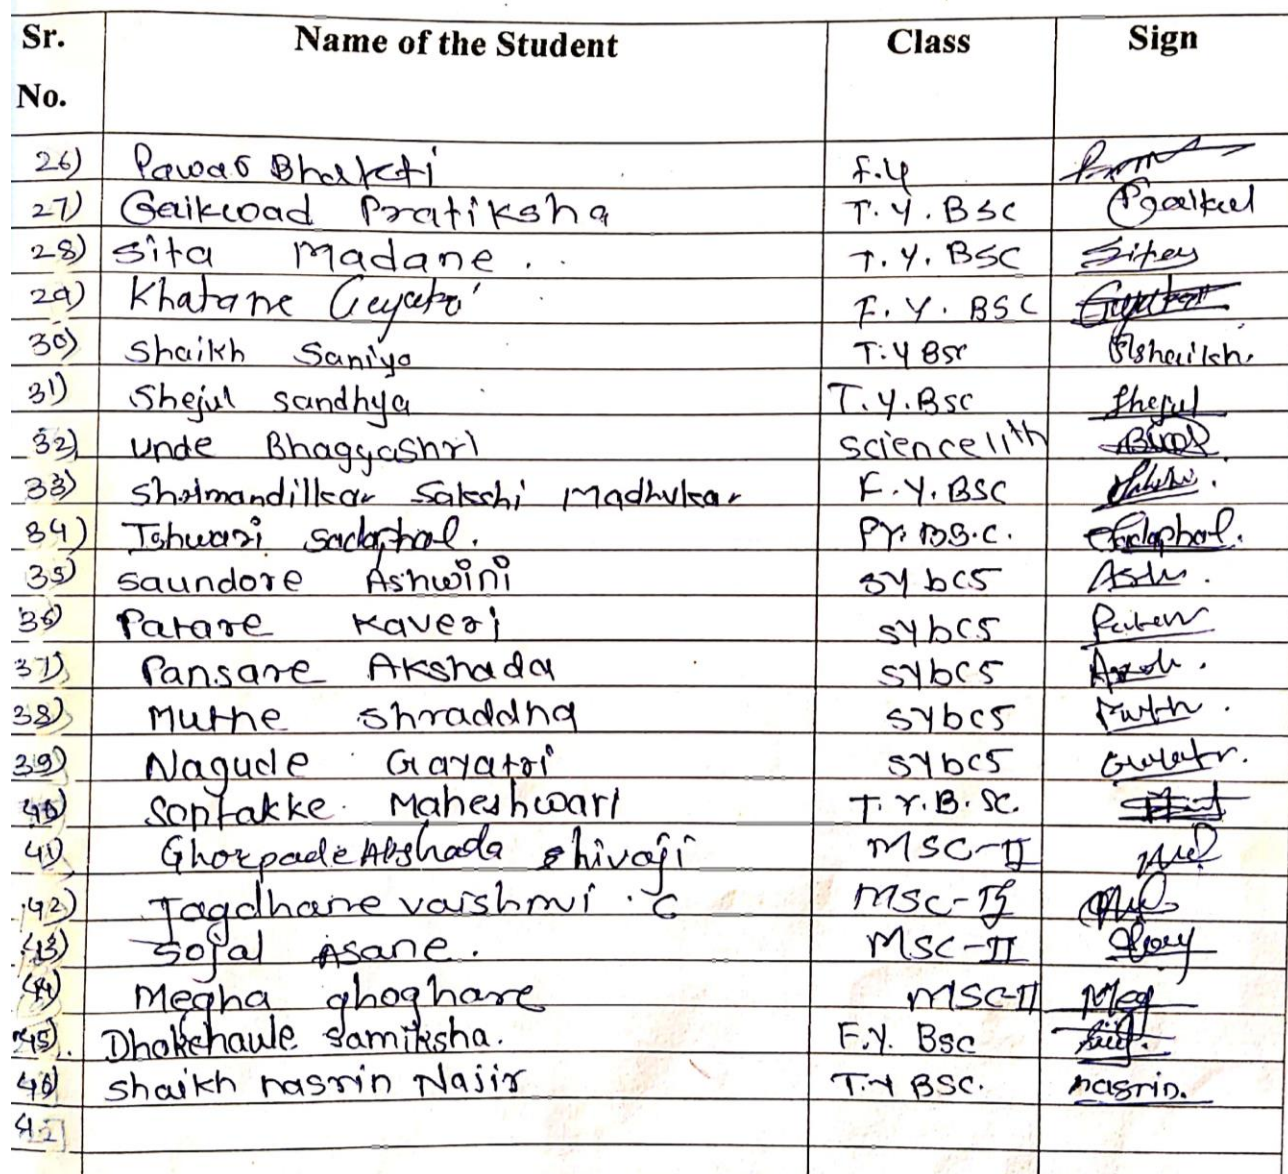 Sr. No. Name of the Student Class Sign
26) Pawar Bhakti F.Y
27) Gaikwad Pratiksha T.Y.BSC
28) Sita Madane . . T.Y. BSC Sitey
29) Khatane Gayatri F.Y. BSC
30) Shaikh Saniya T.Y BSC Shaikh.
31) Shejul Sandhya T.Y.BSC Shejul
32) Unde Bhagyashri Science 11th
33) Shrimandilkar Sakshi Madhukar F.Y.BSC Sakshi.
34) Ishwari Sadaphal. FY.BS.C. Sadaphal.
35) Saundore Ashwini SYBCS Ashu.
36) Patare Kaveri SYBCS
37) Pansare Akshada SYBCS
38) Muthe Shraddha SYBCS Muth.
39) Nagude Gayatri SYBCS Gayatr.
40) Sontakke Maheshwari T.Y.B.SC.
41) Ghorpade Akshada Shivaji MSC-II
42) Jagdhane vaishnvi . C MSC-II
43) Sojal Asane. MSC-II
44) Megha ghoghare MSC-II Meg
45). Dhokchaule Samiksha. F.Y. BSc
46) Shaikh nasrin Najir T.Y BSC. nasrin.